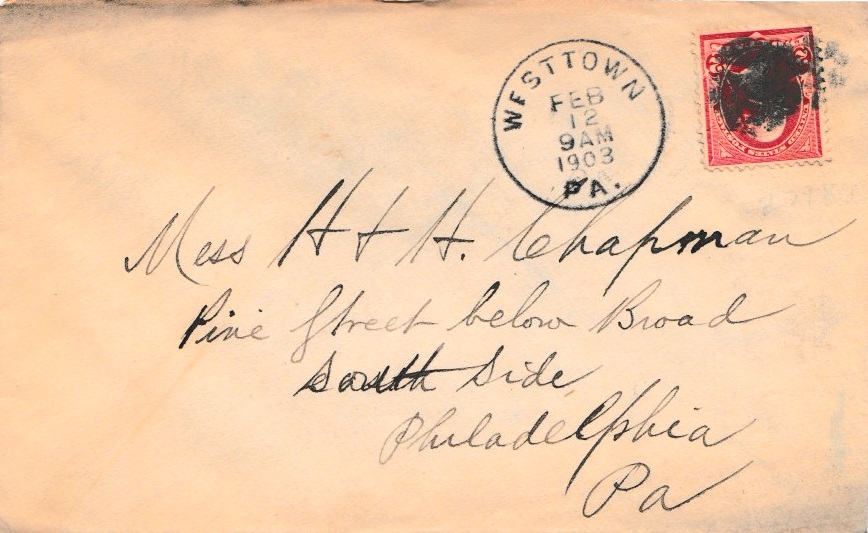 WESTTOWN
FEB
12
9AM
1903
PA.
Mess H + H. Chapman
Pine Street below Broad
South Side
Philadelphia
Pa